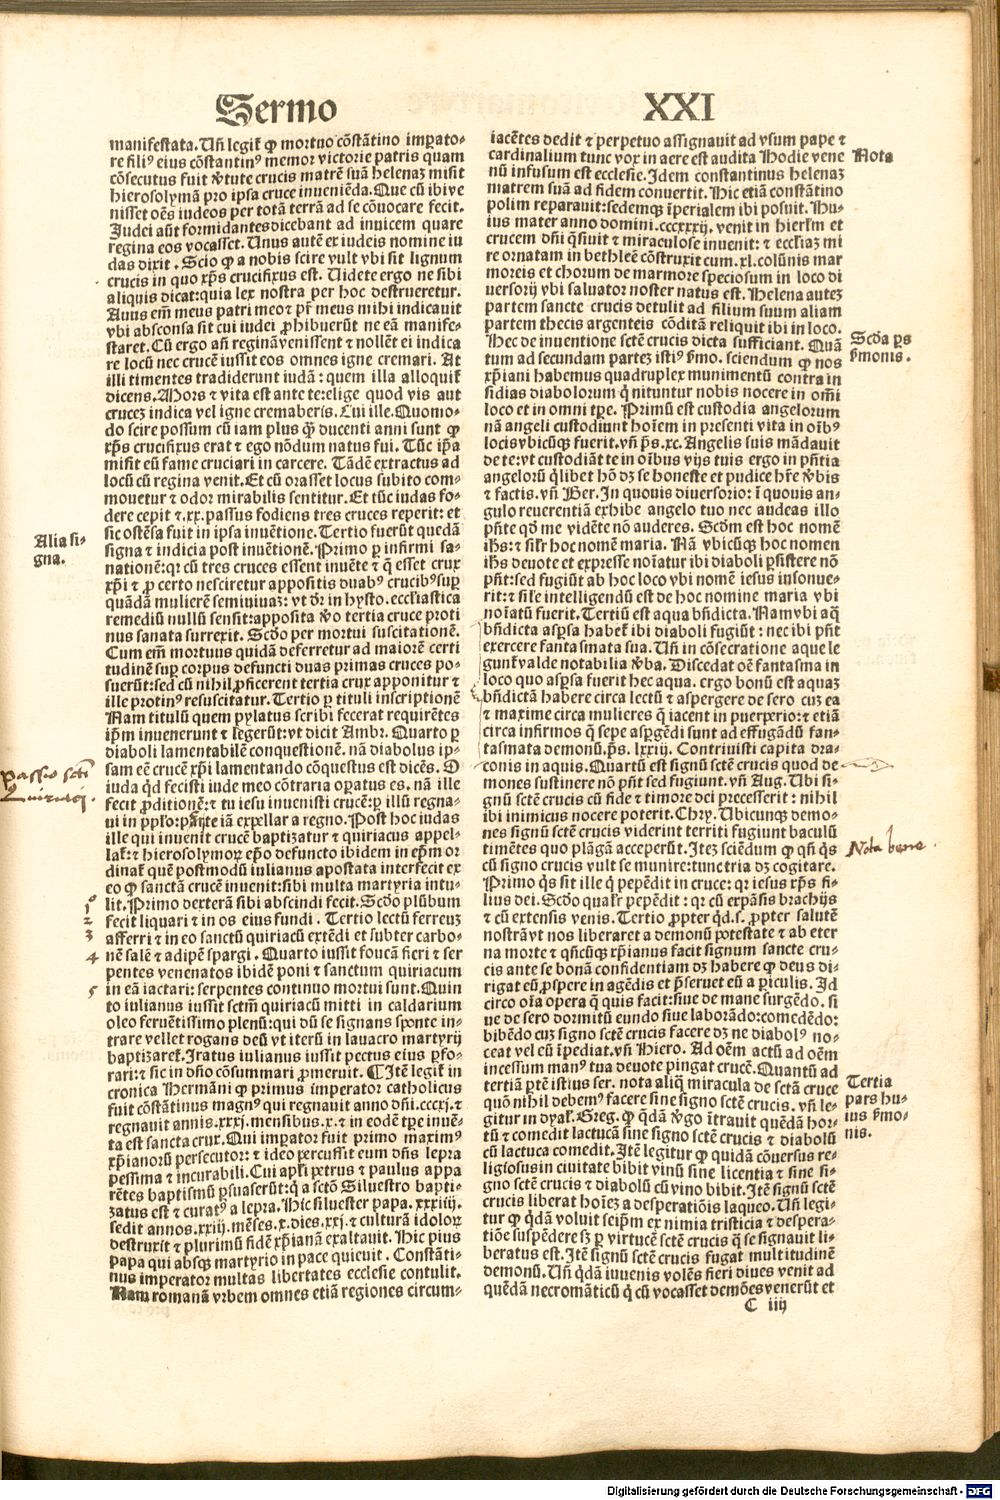 Sermo XXI
manifestata. Vñ legit͛ ꝙ mortuo cõstãtino imꝑato-
re filiꝰ eius cõstantinꝰ memor victorie patris quam
cõsecutus fuit v̾tute crucis matrẽ suã helenaꝫ misit
hierosolymã pro ipsa cruce inueniẽda. Que cũ ibi ve
nisset oẽs iudeos per totã terrã ad se cõuocare fecit.
Judei aũt formidantes dicebant ad inuicem quare
regina eos vocasset. Unus autẽ ex iudeis nomine iu
das dixit. Scio ꝙ a nobis scire vult vbi sit lignum
crucis in quo xp̃s crucifixus est. Uidete ergo ne sibi
aliquis dicat: quia lex nostra per hoc destrueretur.
Auus em̃ meus patri meo ⁊ pr̃ meus mihi indicauit
vbi absconsa sit cui iudei ꝓhibuerũt ne eã manife-
staret. Cũ ergo añ reginã venissent ⁊ nollẽt ei indica
re locũ nec crucẽ iussit eos omnes igne cremari. At
illi timentes tradiderunt iudã: quem illa alloquit͛
dicens. Mors ⁊ vita est ante te: elige quod vis aut
cruceꝫ indica vel igne cremaberis. Cui ille. Quomo-
do scire possum cũ iam plus q̃ ducenti anni sunt ꝙ
xp̃s crucifixus erat ⁊ ego nõdum natus fui. Tũc ip̃a
misit eũ fame cruciari in carcere. Tãdẽ extractus ad
locũ cũ regina venit. Et cũ orasset locus subito com-
mouetur ⁊ odor mirabilis sentitur. Et tũc iudas fo-
dere cepit ⁊.xx. passus fodiens tres cruces reperit: et
sic ostẽsa fuit in ipsa inuẽtione. Tertio fuerũt quedã
Alia si-
gna.
signa ⁊ indicia post inuẽtionẽ. Primo ꝑ infirmi sa-
nationẽ: qꝛ cũ tres cruces essent inuẽte ⁊ q̃ esset crux
xp̃i ⁊ ꝓ certo nesciretur appositis duabꝰ crucibꝰ suꝑ
quãdã mulierẽ semiuiuaꝫ: vt dr̃ in hysto. eccl̃iastica
remediũ nullũ sensit: apposita v̾o tertia cruce proti
nus sanata surrexit. Scd̃o per mortui suscitationẽ.
Cum em̃ mortuus quidã deferretur ad maiorẽ certi
tudinẽ suꝑ corpus defuncti duas primas cruces po-
suerũt: sed cũ nihil ꝓficerent tertia crux apponitur ⁊
ille protinꝰ resuscitatur. Tertio ꝑ tituli inscriptionẽ
Nam titulũ quem pylatus scribi fecerat requirẽtes
ip̃m inuenerunt ⁊ legerũt: vt dicit Ambr. Quarto ꝑ
diaboli lamentabilẽ conquestionẽ. nã diabolus ip-
sam eẽ crucẽ xp̃i lamentando cõquestus est dicẽs. O
passio scti
Quiriaci.
iuda qd̃ fecisti iude meo cõtraria oꝑatus es. nã ille
fecit ꝓditionẽ: ⁊ tu iesu inuenisti crucẽ: ꝑ illũ regna-
ui in pp̃lo: per te iã expellar a regno. Post hoc iudas
ille qui inuenit crucẽ baptizatur ⁊ quiriacus appel-
lat͛: ⁊ hierosolymoꝝ ep̃o defuncto ibidem in ep̃m or
dinat͛ quẽ postmodũ iulianus apostata interfecit ex
eo ꝙ sanctã crucẽ inuenit: sibi multa martyria intu-
1
lit. Primo dexterã sibi abscindi fecit. Scd̃o plũbum
2
fecit liquari ⁊ in os eius fundi. Tertio lectũ ferreuꝫ
3
afferri ⁊ in eo sanctũ quiriacũ extẽdi et subter carbo-
4
nẽ salẽ ⁊ adipẽ spargi. Quarto iussit foueã fieri ⁊ ser
pentes venenatos ibidẽ poni ⁊ sanctum quiriacum
5
in eã iactari: serpentes continuo mortui sunt. Quin
to iulianus iussit sctm̃ quiriacũ mitti in caldarium
oleo feruẽtissimo plenũ: qui dũ se signans sponte in-
trare vellet rogans deũ vt iterũ in lauacro martyrij
baptizaret͛. Iratus iulianus iussit pectus eius ꝑfo-
rari: ⁊ sic in dño cõsummari ꝓmeruit. ¶ Itẽ legit͛ in
cronica Hermãni ꝙ primus imperator catholicus
fuit cõstãtinus magnꝰ qui regnauit anno dñi.cccxj. ⁊
regnauit annis.xxxj. mensibus.x. ⁊ in eodẽ tꝑe inuẽ-
ta est sancta crux. Qui imꝑator fuit primo maximꝰ
xp̃ianorũ persecutor: ⁊ ideo percussit eum dñs lepra
pessima ⁊ incurabili. Cui apl̃i petrus ⁊ paulus appa
rẽtes baptismũ ꝑsuaserũt: q̃ a sctõ Siluestro bapti-
zatus est ⁊ curatꝰ a lepra. Hic siluester papa.xxxiiij.
sedit annos.xxiij. mẽses.x. dies.xxj. ⁊ culturã idoloꝝ
destruxit ⁊ plurimũ fidẽ xp̃ianã exaltauit. Hic pius
papa qui absqꝫ martyrio in pace quieuit. Constãti-
nus imperator multas libertates ecclesie contulit.
Nam romanã vrbem omnes etiã regiones circum-
iacẽtes dedit ⁊ perpetuo assignauit ad vsum pape ⁊
cardinalium tunc vox in aere est audita Hodie vene
Nota
nũ infusum est ecclesie. Idem constantinus helenaꝫ
matrem suã ad fidem conuertit. Hic etiã constãtino
polim reparauit: sedemqꝫ ĩperialem ibi posuit. Hu-
ius mater anno domini.cccxxxij. venit in hierl̃m et
crucem dñi q̃siuit ⁊ miraculose inuenit: ⁊ eccl̃iaꝫ mi
re ornatam in bethleẽ cõstruxit cum.xl. colũnis mar
moreis et chorum de marmore speciosum in loco di
uersorij vbi saluator noster natus est. Helena auteꝫ
partem sancte crucis detulit ad filium suum aliam
partem thecis argenteis cõditã reliquit ibi in loco.
Hec de inuentione sctẽ crucis dicta sufficiant. Quã
Scd̃a ꝑs
s̾monis.
tum ad secundam parteꝫ istiꝰ s̾mo. sciendum ꝙ nos
xp̃iani habemus quadruplex munimentũ contra in
sidias diabolorum q̃ nituntur nobis nocere in om̃i
loco et in omni tꝑe. Primũ est custodia angelorum
nã angeli custodiunt hoĩem in presenti vita in oĩbꝰ
locis vbicũqꝫ fuerit. vñ p̃s.xc. Angelis suis mãdauit
de te: vt custodiãt te in oĩbus vijs tuis ergo in p̃ntia
angelorũ q̃libet hõ dꝫ se honeste et pudice hr̃e v̾bis
⁊ factis. vñ Ber. In quouis diuersorio: ĩ quouis an-
gulo reuerentiã exhibe angelo tuo nec audeas illo
p̃nte qd̃ me vidẽte nõ auderes. Scd̃m est hoc nomẽ
ih̃s: ⁊ sil̃r hoc nomẽ maria. Nã vbicũqꝫ hoc nomen
ih̃s deuote et expresse noĩatur ibi diaboli ꝑsistere nõ
p̃nt: sed fugiũt ab hoc loco vbi nomẽ iesus insonue-
rit: ⁊ sil̃e intelligendũ est de hoc nomine maria vbi
noĩatũ fuerit. Tertiũ est aqua bñdicta. Nam vbi aq̃
bñdicta aspsa habet͛ ibi diaboli fugiũt: nec ibi p̃nt
exercere fantasmata sua. Uñ in cõsecratione aque le
gunt͛ valde notabilia v̾ba. Discedat oẽ fantasma in
loco quo aspsa fuerit hec aqua. ergo bonũ est aquaꝫ
bñdictã habere circa lectũ ⁊ aspergere de sero cuꝫ ea
⁊ maxime circa mulieres q̃ iacent in puerperio: ⁊ etiã
circa infirmos q̃ sepe asꝑgẽdi sunt ad effugãdũ fan-
tasmata demonũ. p̃s. lxxiij. Contriuisti capita dra-
conis in aquis. Quartũ est signũ sctẽ crucis quod de
mones sustinere nõ p̃nt sed fugiunt. vñ Aug. Ubi si-
gnũ sctẽ crucis cũ fide ⁊ timore dei precesserit: nihil
ibi inimicus nocere poterit. Chry. Ubicunqꝫ demo-
nes signũ sctẽ crucis viderint territi fugiunt baculũ
timẽtes quo plãgã acceperũt. Iteꝫ sciẽdum ꝙ qñ q̃s
Nota bene.
cũ signo crucis vult se munire: tunc tria dꝫ cogitare.
Primo q̃s sit ille q̃ pepẽdit in cruce: qꝛ iesus xp̃s fi-
lius dei. Scd̃o qualr̃ pepẽdit: qꝛ cũ expãsis brachijs
⁊ cũ extensis venis. Tertio ꝓpter qd̃. s. ꝓpter salutẽ
nostrã vt nos liberaret a demonũ potestate ⁊ ab eter
na morte ⁊ qñcũqꝫ xp̃ianus facit signum sancte cru-
cis ante se bonã confidentiam dꝫ habere ꝙ deus di-
rigat eũ ꝓspere in agẽdis et p̃seruet eũ a ꝑiculis. Id
circo oĩa opera q̃ quis facit: siue de mane surgẽdo. si
ue de sero dormitũ eundo siue laborãdo: comedẽdo:
bibẽdo cuꝫ signo sctẽ crucis facere dꝫ ne diabolꝰ no-
ceat vel eũ ĩpediat. vñ Hiero. Ad oẽm actũ ad oẽm
incessum manꝰ tua deuote pingat crucẽ. Quantũ ad
tertiã ꝑtẽ istius ser. nota aliq̃ miracula de sctã cruce
Tertia
pars hu-
ius s̾mo-
nis.
quõ nihil debemꝰ facere sine signo sctẽ crucis. vñ le-
gitur in dyal͛. Greg. ꝙ q̃dã v̾go ĩtrauit quẽdã hor-
tũ ⁊ comedit lactucã sine signo sctẽ crucis ⁊ diabolũ
cũ lactuca comedit. Itẽ legitur ꝙ quidã cõuersus re-
ligiosus in ciuitate bibit vinũ sine licentia ⁊ sine si-
gno sctẽ crucis ⁊ diabolũ cũ vino bibit. Itẽ signũ sctẽ
crucis liberat hoĩeꝫ a desperatiõis laqueo. Uñ legi-
tur ꝙ q̃dã voluit seip̃m ex nimia tristicia ⁊ despera-
tiõe suspẽdere sꝫ ꝑ virtucẽ sctẽ crucis q̃ se signauit li-
beratus est. Itẽ signũ sctẽ crucis fugat multitudinẽ
demonũ. Uñ q̃dã iuuenis volẽs fieri diues venit ad
quẽdã necromãticũ q̃ cũ vocasset demões venerũt et
C iiij
Digitalisierung gefördert durch die Deutsche Forschungsgemeinschaft - DFG